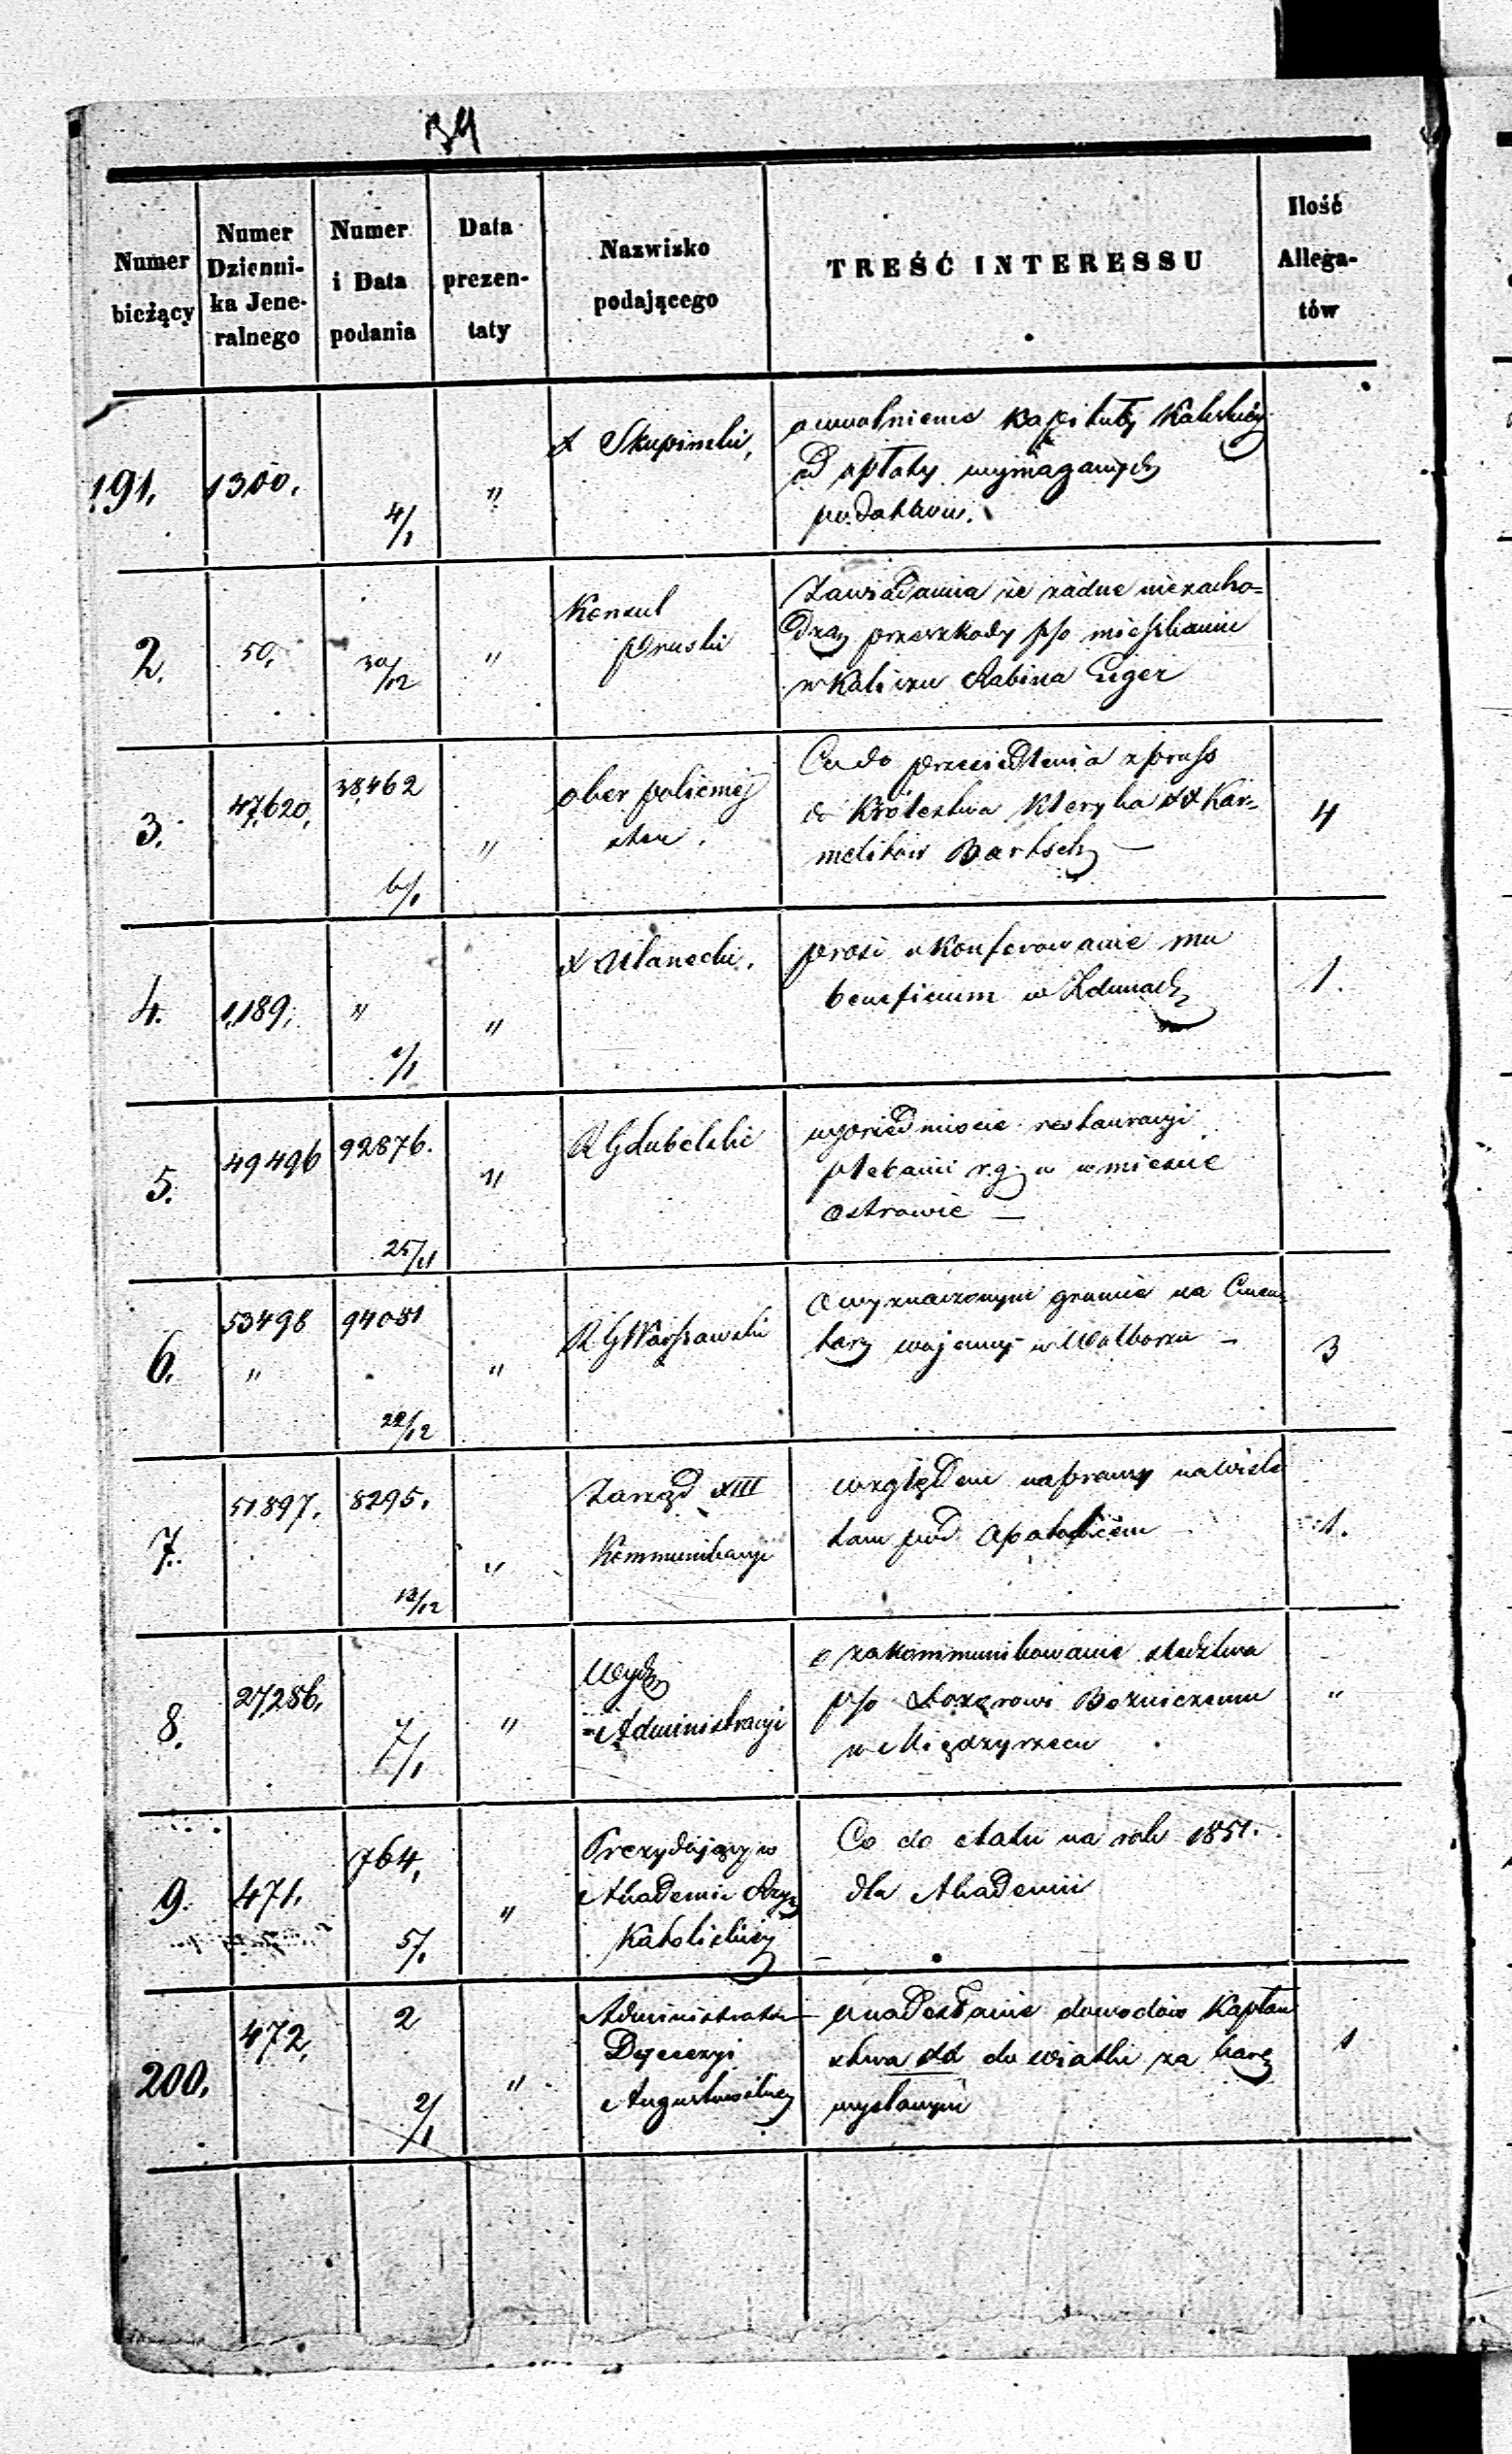 34
Numer bieżący
Numer Dzienni-ka Jene-ralnego
Numer i Data podania
Data prezen-taty
Nazwisko podającego
TREŚĆ INTERESSU
Ilość Allega-tów
191. 1300. 4/1 " X Skupinski,
o uwolnienie Kapituły Kaliskiéj
od opłaty wymaganych
podatków.
2. 50. 30/12 " Konsul
Pruski
Zawiadamia że żadne niezacho=
dzą przeszkody p/o mieszkaniu
w Kaliszu Rabina Eiger
3. 47,620, 38462 6/1 " ober policmaj
ster.
Co do przesiedlenia z pruss
do Królestwa Kleryka XX Kar=
melitów Bartsch —
4
4. 1,189, " 1/1 " X Ulanecki.
prosi o Konferowanie mu
beneficium w Zdunach
1.
5. 49496 92876. 25/11 " R G Lubelski
w przedmiocie restauracyi
plebanii r.g. u w mieście
Ostrowie —
6. 53498 " 94081 22/12 " R G Warszawski
O wyznaczonym gruncie na Cmen=
tarz wojenny w Wolborzu —
3
7. 51897. 8295. 13/12 " Zarząd XIII
Kommunikacyi
względem naprawy
tam pod
1.
8. 27286, 7/1 " Wydz
Administracyi
o zakommunikowanie śledztwa
p/o Dozorowi Bożniczemu
w Międzyrzecu
"
9. 471. 764, 5/1 " Prezydujący w
Akademii Rzym
Katolickiéj
Co do etatu na rok 1851.
dla Akademii
200. 472, 2 2/1 " Administrator
Dyecezyi
Augustowskiey
o nadesłanie dowodów Kapłań
stwa XX do Wiatki za karę
wysłanym
1